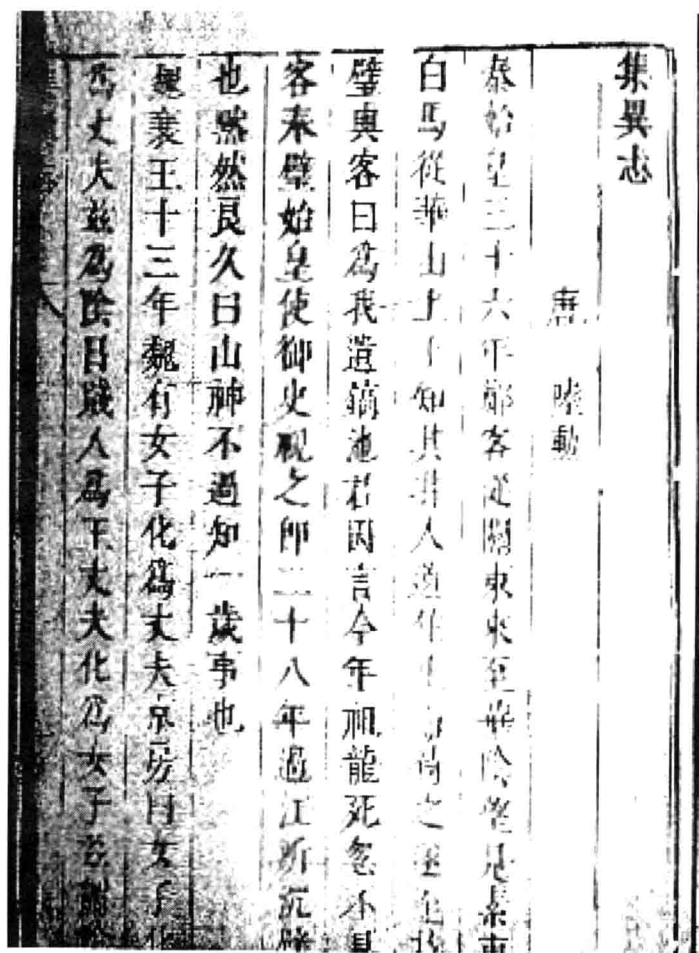 集異志
唐 陸勳
秦始皇三十六年鄭客從關東來至華陰望見素車
白馬從華山上下知其非人道住止而待之遂至持
璧與客曰為我遺鎬池君因言今年祖龍死忽不見
客奉璧始皇使御史視之即二十八年過江所沉璧
也黙然良久曰山神不過知一歲事也
魏襄王十三年魏有女子化爲丈夫京房曰女子化
爲丈夫茲爲陰昌賤人爲王丈夫化爲女子茲謂陰